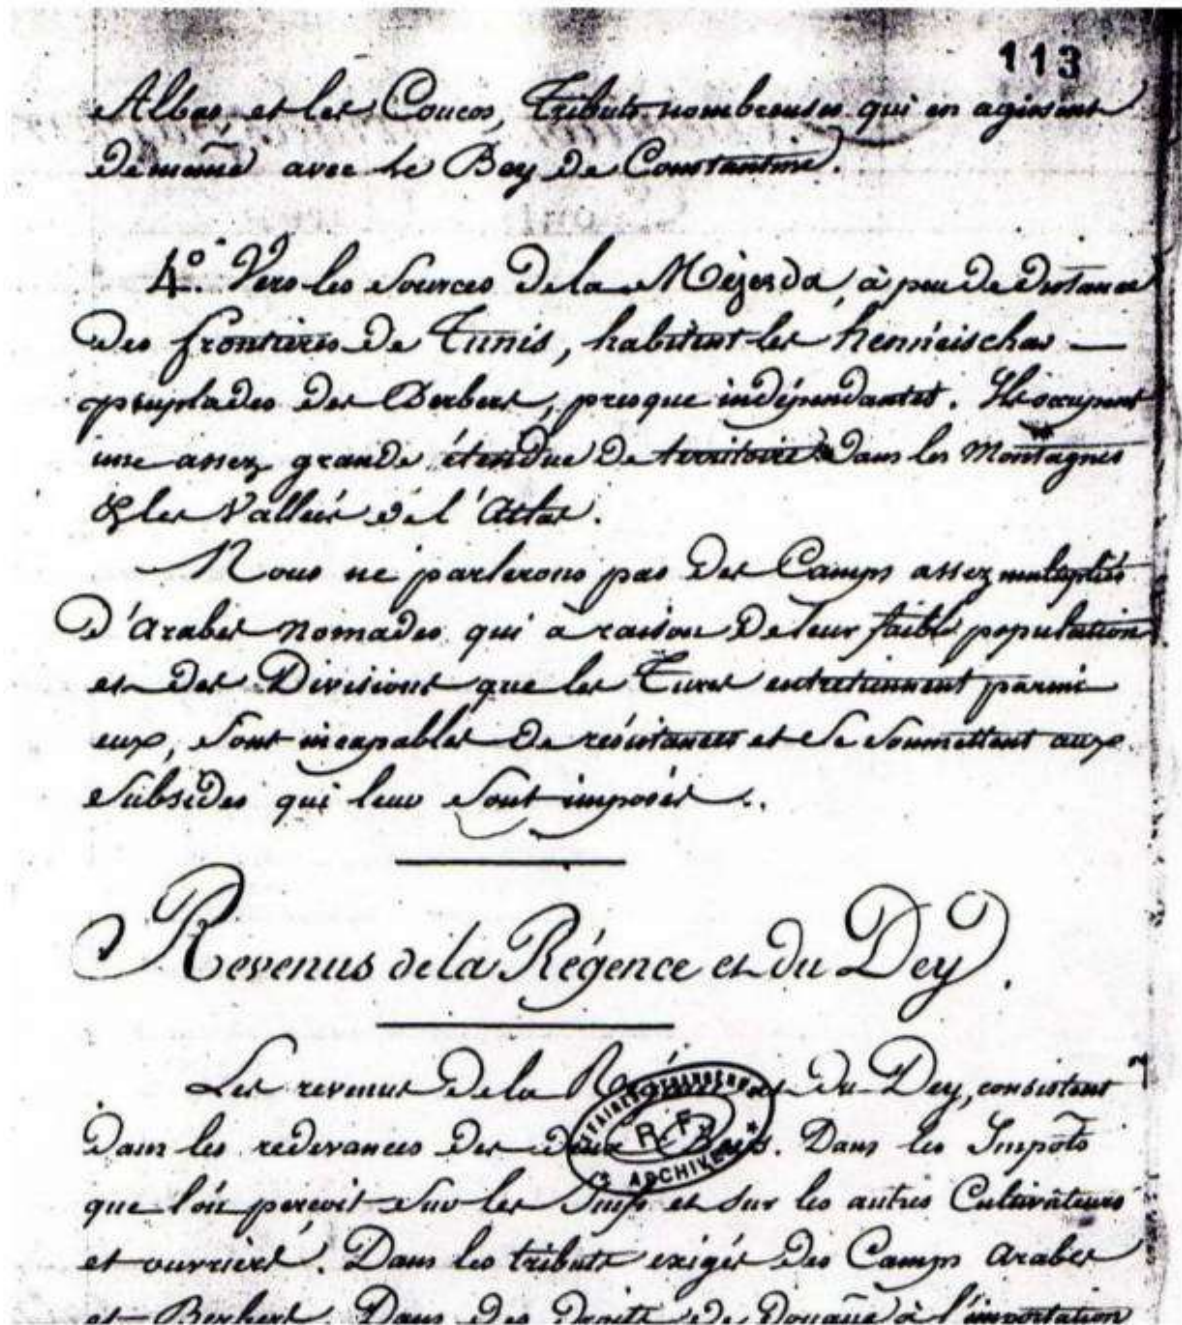 113
Albas, et les Coucos, Tributs nombreuses qui en agissent
de même avec le Bey de Constantine.
4.° Vers les Sources de la Méjerda, à peu de distance
des frontières de Tunis, habitent les henneischas —
peuplades des Berbers, presque indépendantes. Ils occupent
une assez grande étendue de territoire dans les Montagnes
& les Vallées de l'Atlas.
Nous ne parlerons pas des Camps assez multipliés
d'Arabes nomades qui a raison de leur faible population
et des Divisions que les Turcs entretiennent parmi
eux, sont incapables de résistances et se soumettent aux
subsides qui leur sont imposés.
Revenus de la Régence et du Dey.
Les revenus de la Régence et du Dey, consistent
dans les redevances des deux Beys. Dans les Impôts
que l'on perçoit sur les Juifs et sur les autres Cultivateurs
et ouvriers. Dans les tributs exigés des Camps arabes
et Berbers. Dans des Droits de Douane à l'importation
R.F.
ARCHIVES